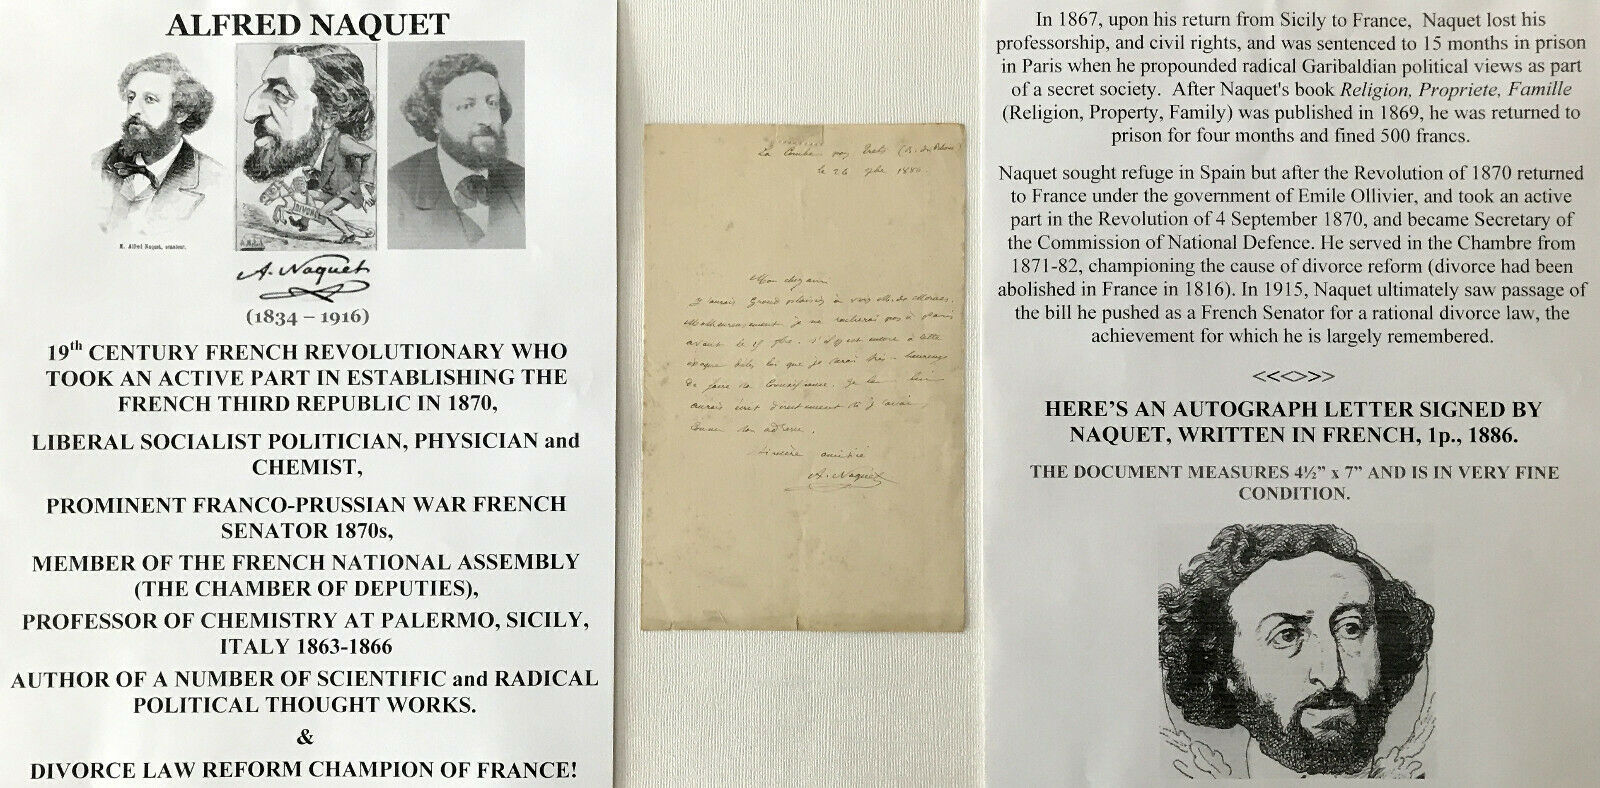 ALFRED NAQUET
M. Alfred Naquet, senateur.
DIVORCE
A. Naquet
(1834 – 1916)
19th CENTURY FRENCH REVOLUTIONARY WHO
TOOK AN ACTIVE PART IN ESTABLISHING THE
FRENCH THIRD REPUBLIC IN 1870,
LIBERAL SOCIALIST POLITICIAN, PHYSICIAN and
CHEMIST,
PROMINENT FRANCO-PRUSSIAN WAR FRENCH
SENATOR 1870s,
MEMBER OF THE FRENCH NATIONAL ASSEMBLY
(THE CHAMBER OF DEPUTIES),
PROFESSOR OF CHEMISTRY AT PALERMO, SICILY,
ITALY 1863-1866
AUTHOR OF A NUMBER OF SCIENTIFIC and RADICAL
POLITICAL THOUGHT WORKS.
&
DIVORCE LAW REFORM CHAMPION OF FRANCE!
La Combe par
le 26 1886.
Mon cher ami
J'aurais grand plaisir à voir M. de
Malheureusement je ne rentrerai pas à Paris
avant le S'il est encore à cette
époque que je serai très-heureux
de faire sa connaissance. Je lui
aurais écrit directement si j'avais
connu son adresse.
Sincère amitié
A. Naquet
In 1867, upon his return from Sicily to France, Naquet lost his
professorship, and civil rights, and was sentenced to 15 months in prison
in Paris when he propounded radical Garibaldian political views as part
of a secret society. After Naquet's book Religion, Propriete, Famille
(Religion, Property, Family) was published in 1869, he was returned to
prison for four months and fined 500 francs.
Naquet sought refuge in Spain but after the Revolution of 1870 returned
to France under the government of Emile Ollivier, and took an active
part in the Revolution of 4 September 1870, and became Secretary of
the Commission of National Defence. He served in the Chambre from
1871-82, championing the cause of divorce reform (divorce had been
abolished in France in 1816). In 1915, Naquet ultimately saw passage of
the bill he pushed as a French Senator for a rational divorce law, the
achievement for which he is largely remembered.
<<<>>>
HERE'S AN AUTOGRAPH LETTER SIGNED BY
NAQUET, WRITTEN IN FRENCH, 1p., 1886.
THE DOCUMENT MEASURES 4½" x 7" AND IS IN VERY FINE
CONDITION.